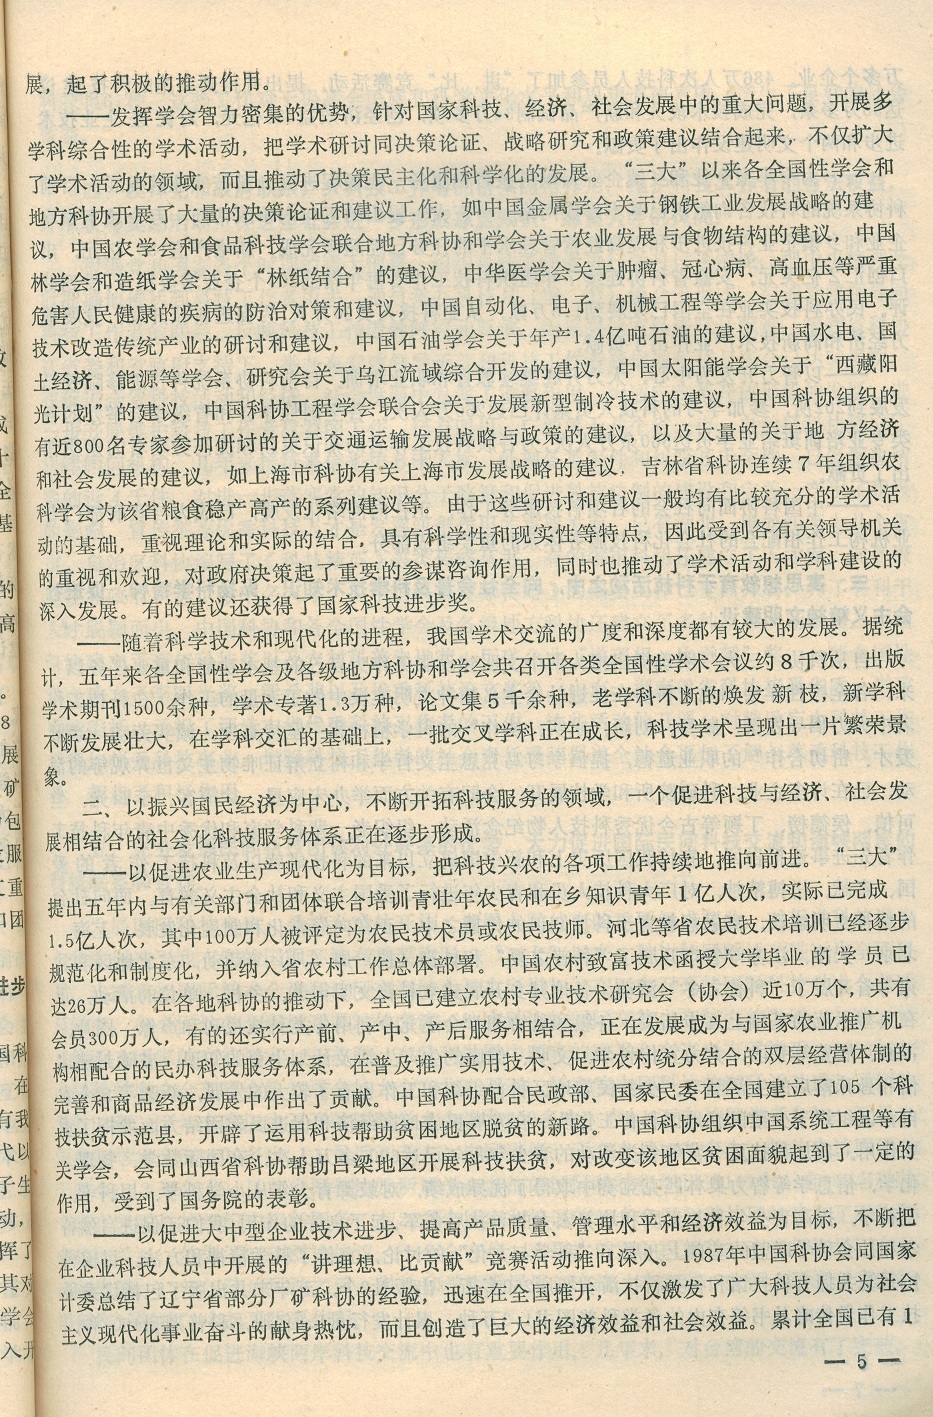 展，起了积极的推动作用。
——发挥学会智力密集的优势，针对国家科技、经济、社会发展中的重大问题，开展多
学科综合性的学术活动，把学术研讨同决策论证、战略研究和政策建议结合起来，不仅扩大
了学术活动的领域，而且推动了决策民主化和科学化的发展。“三大”以来各全国性学会和
地方科协开展了大量的决策论证和建议工作，如中国金属学会关于钢铁工业发展战略的建
议，中国农学会和食品科技学会联合地方科协和学会关于农业发展与食物结构的建议，中国
林学会和造纸学会关于“林纸结合”的建议，中华医学会关于肿瘤、冠心病、高血压等严重
危害人民健康的疾病的防治对策和建议，中国自动化、电子、机械工程等学会关于应用电子
技术改造传统产业的研讨和建议，中国石油学会关于年产1.4亿吨石油的建议，中国水电、国
土经济、能源等学会、研究会关于乌江流域综合开发的建议，中国太阳能学会关于“西藏阳
光计划”的建议，中国科协工程学会联合会关于发展新型制冷技术的建议，中国科协组织的
有近800名专家参加研讨的关于交通运输发展战略与政策的建议，以及大量的关于地 方经济
和社会发展的建议，如上海市科协有关上海市发展战略的建议．吉林省科协连续７年组织农
科学会为该省粮食稳产高产的系列建议等。由于这些研讨和建议一般均有比较充分的学术活
动的基础，重视理论和实际的结合，具有科学性和现实性等特点，因此受到各有关领导机关
的重视和欢迎，对政府决策起了重要的参谋咨询作用，同时也推动了学术活动和学科建设的
深入发展。有的建议还获得了国家科技进步奖。
——随着科学技术和现代化的进程，我国学术交流的广度和深度都有较大的发展。据统
计，五年来各全国性学会及各级地方科协和学会共召开各类全国性学术会议约８千次，出版
学术期刊1500余种，学术专著1.3万种，论文集５千余种，老学科不断的焕发 新 枝，新学科
不断发展壮大，在学科交汇的基础上，一批交叉学科正在成长，科技学术呈现出一片繁荣景
象。
二、以振兴国民经济为中心，不断开拓科技服务的领域，一个促进科技与经济、社会发
展相结合的社会化科技服务体系正在逐步形成。
——以促进农业生产现代化为目标，把科技兴农的各项工作持续地推向前进。“三大”
提出五年内与有关部门和团体联合培训青壮年农民和在乡知识青年１亿人次，实际已完成
1.5亿人次，其中100万人被评定为农民技术员或农民技师。河北等省农民技术培训已经逐步
规范化和制度化，并纳入省农村工作总体部署。中国农村致富技术函授大学毕业 的 学 员 已
达26万人。在各地科协的推动下，全国已建立农村专业技术研究会（协会）近10万个，共有
会员300万人，有的还实行产前、产中、产后服务相结合，正在发展成为与国家农业推广机
构相配合的民办科技服务体系，在普及推广实用技术、促进农村统分结合的双层经营体制的
完善和商品经济发展中作出了贡献。中国科协配合民政部、国家民委在全国建立了105 个科
技扶贫示范县，开辟了运用科技帮助贫困地区脱贫的新路。中国科协组织中国系统工程等有
关学会，会同山西省科协帮助吕梁地区开展科技扶贫，对改变该地区贫困面貌起到了一定的
作用，受到了国务院的表彰。
——以促进大中型企业技术进步、提高产品质量、管理水平和经济效益为目标，不断把
在企业科技人员中开展的“讲理想、比贡献”竞赛活动推向深入。1987年中国科协会同国家
计委总结了辽宁省部分厂矿科协的经验，迅速在全国推开，不仅激发了广大科技人员为社会
主义现代化事业奋斗的献身热忱，而且创造了巨大的经济效益和社会效益。累计全国已有１
— 5 —